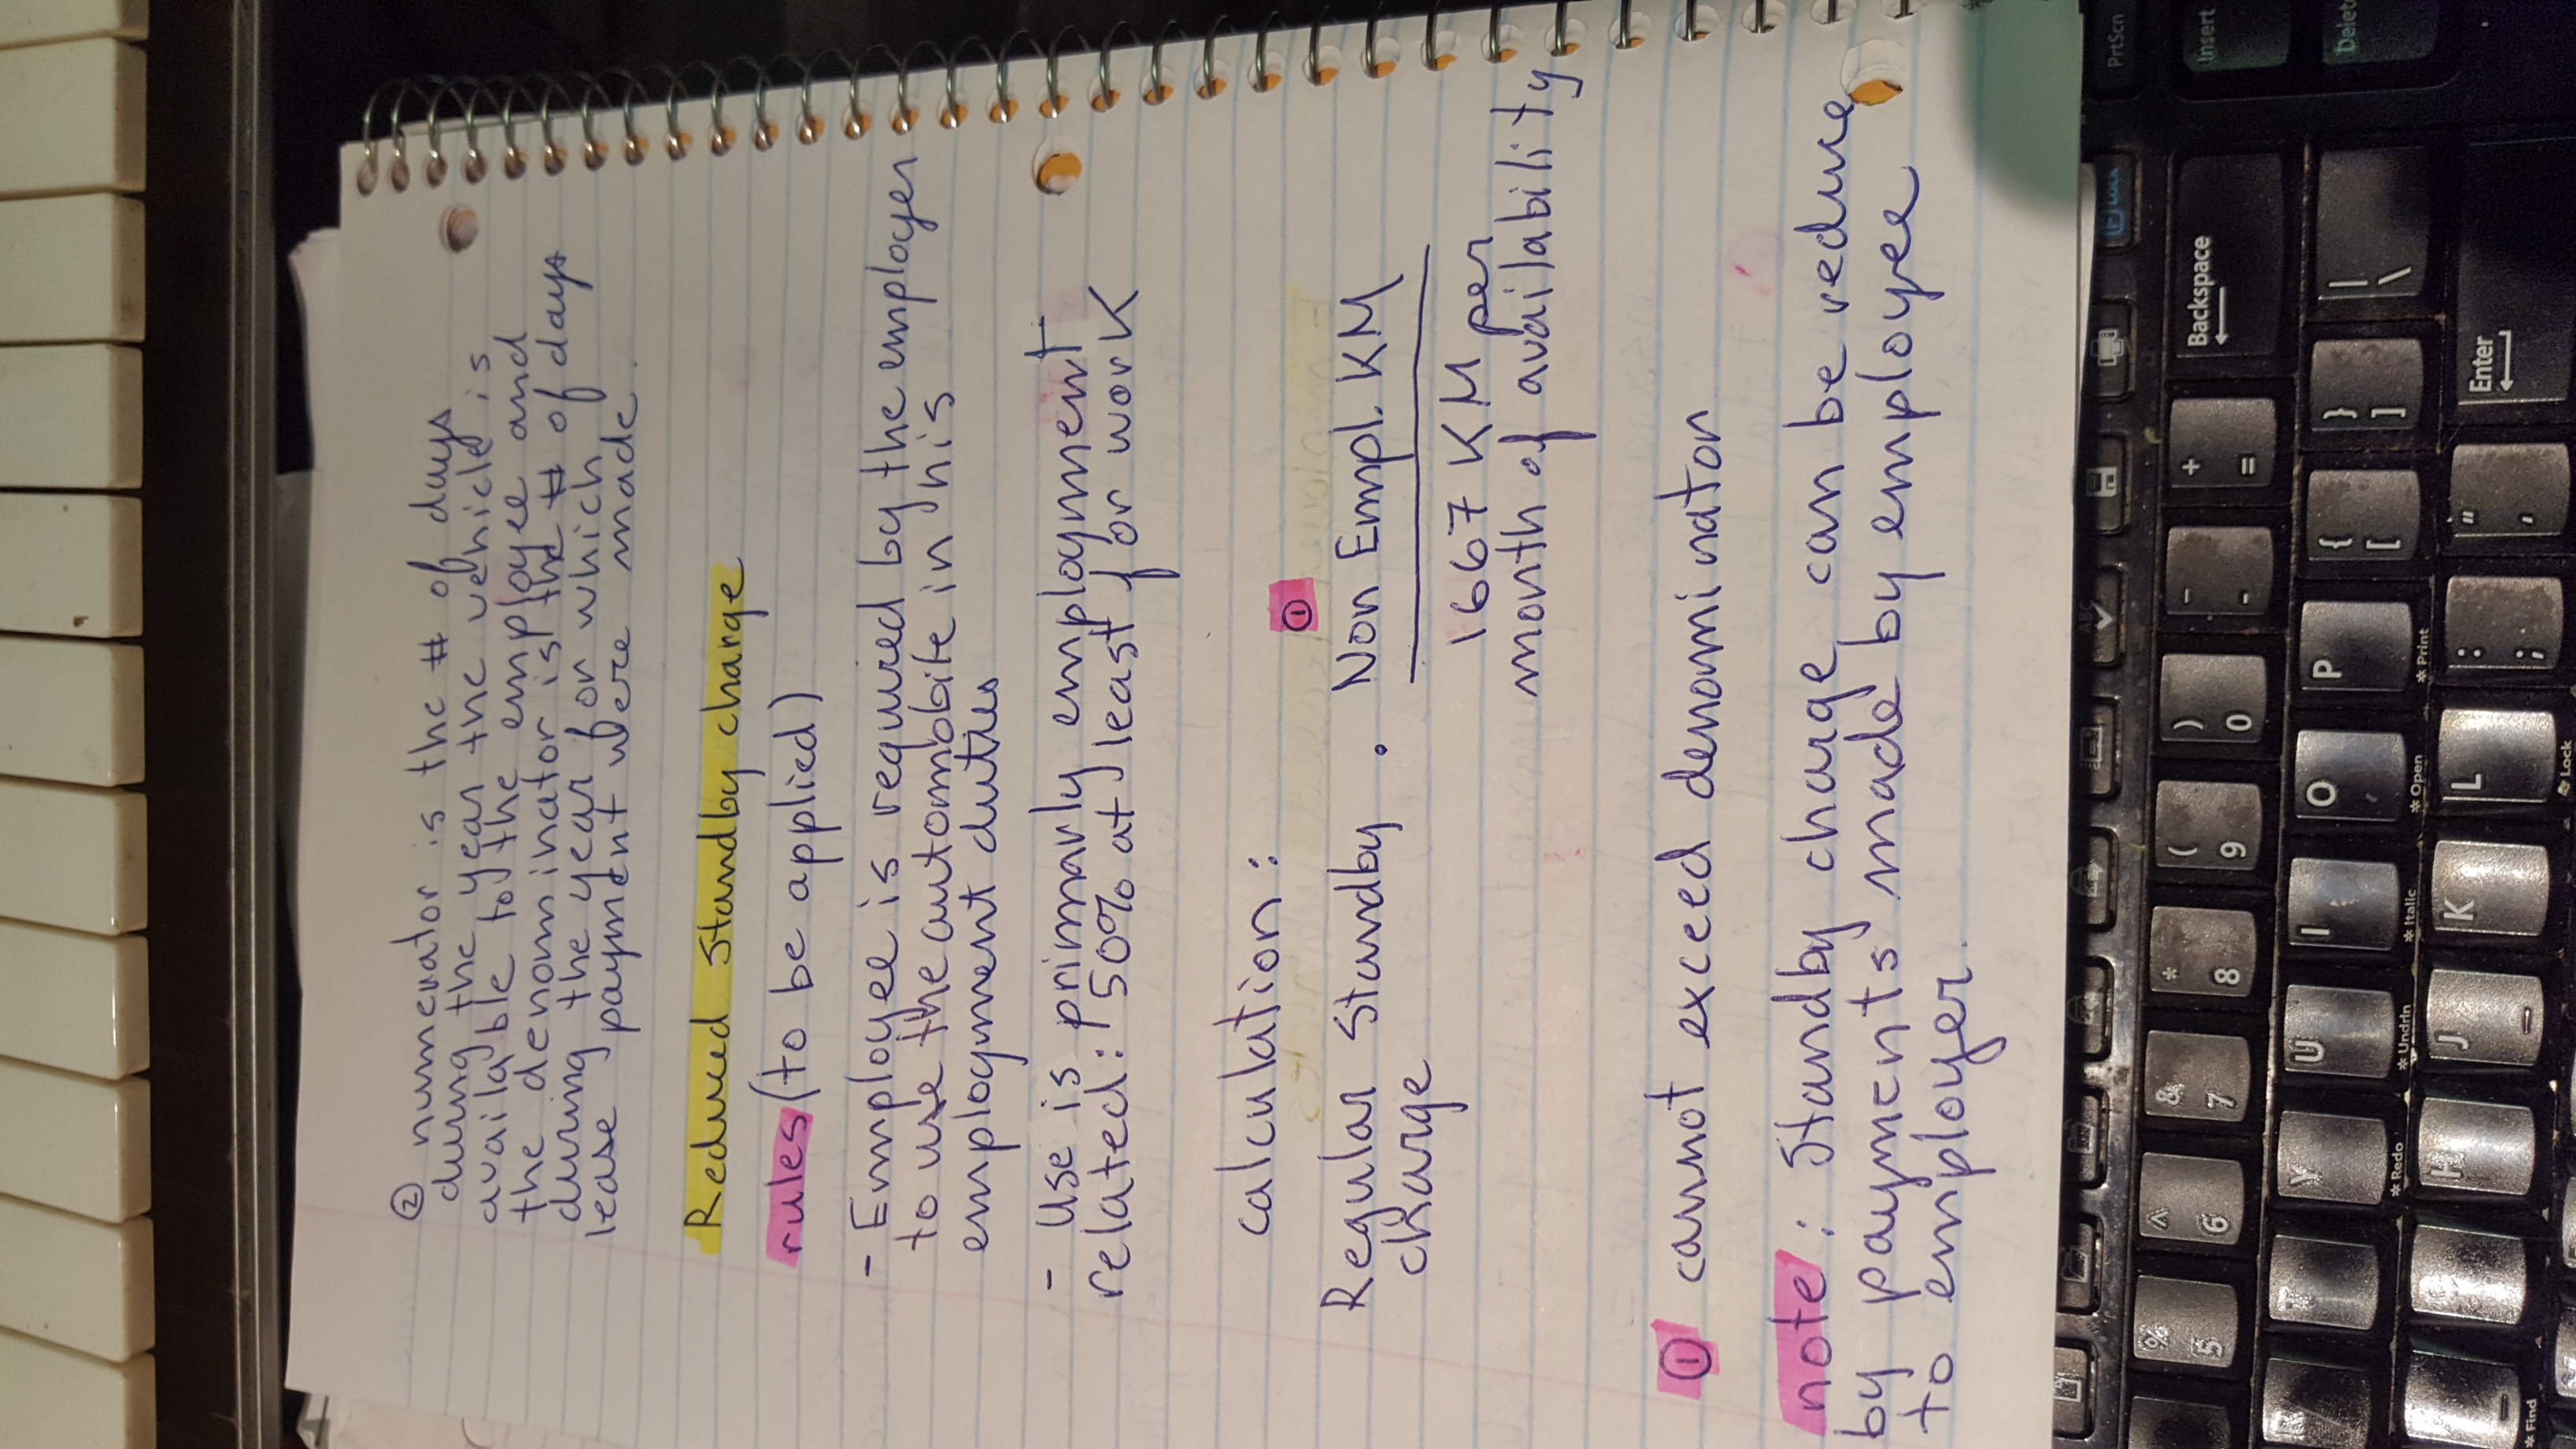 ② numerator is the # of days
during the year the vehicle is
available to the employee and
the denominator is the # of days
during the year for which
lease payment were made.
Reduced Standby charge
rules (to be applied)
- Employee is required by the employer
to use the automobile in his
employment duties
- Use is primarly employment
related: 50% at least for work
calculation:
①
Regular Standby . Non Empl. KM
charge
1667 KM per
month of availability
① cannot exceed denominator
note: Standby charge can be reduce
by payments made by employee
to employer.
PrtScn
Insert
Delete
Backspace
Enter
+ =
- -
) 0
( 9
* 8
& 7
^ 6
% 5
| \
} ]
{ [
P
O
I
U
Y
" '
: ;
L
K
J
H
*Print
*Open
*Italic
*Undrln
*Redo
*Find
*Lock